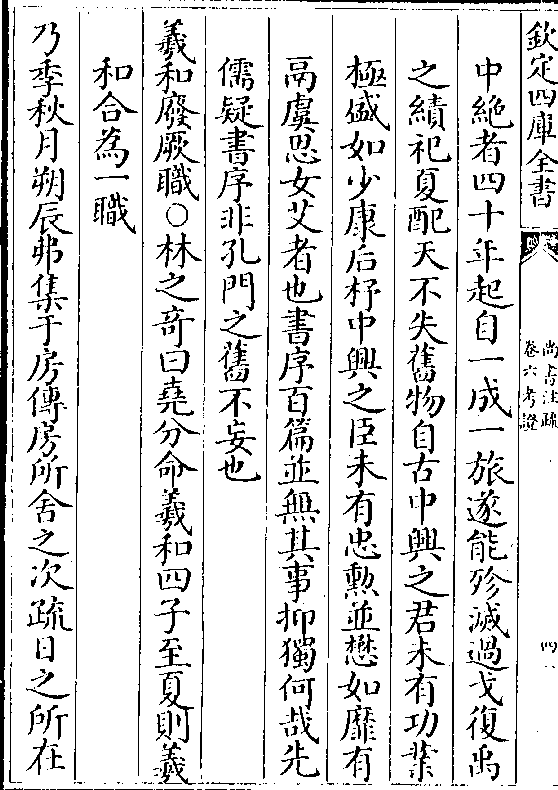 欽定四庫全書
尚書注疏
卷六考證
四
中絶者四十年起自一成一旅遂能殄滅過戈復禹
之績祀夏配天不失舊物自古中興之君未有功業
極盛如少康后杼中興之臣未有忠勲並懋如靡有
鬲虞思女艾者也書序百篇並無其事抑獨何哉先
儒疑書序非孔門之舊不妄也
羲和廢厥職○林之奇曰堯分命羲和四子至夏則羲
和合為一職
乃季秋月朔辰弗集于房傳房所舍之次疏日之所在